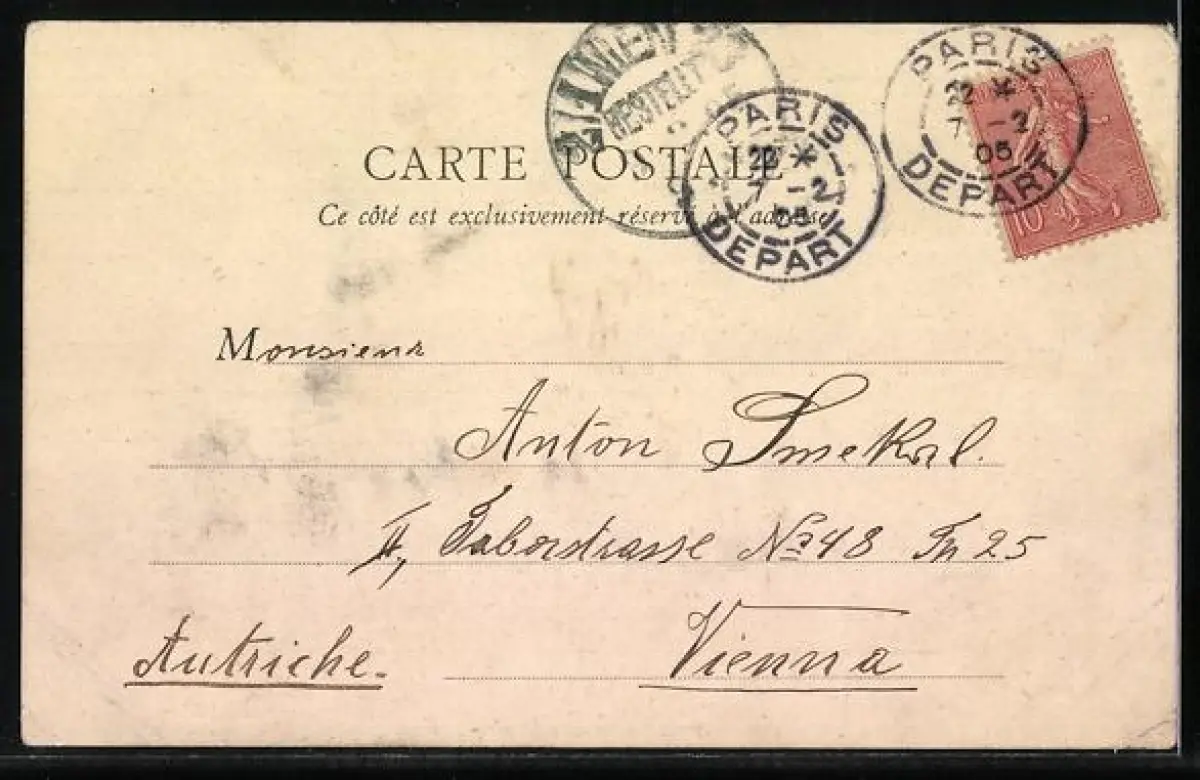 WIEN
BESTELLT
PARIS
22 *
7 - 2
05
DEPART
PARIS
22 *
7 - 2
05
DEPART
10
CARTE POSTALE
Ce côté est exclusivement réservé à l'adresse
Monsieur
Anton Smekal.
II, Taborstrasse No 48 Th 25
Vienna
Autriche.